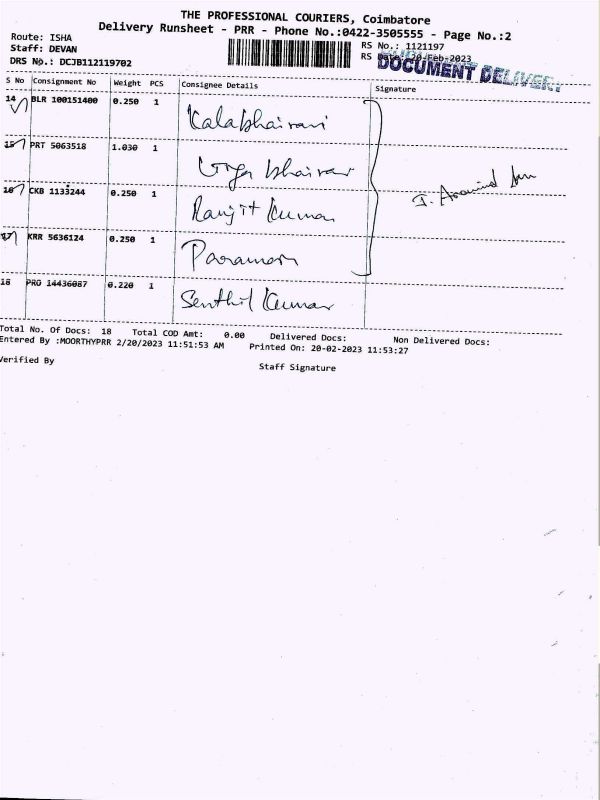 THE PROFESSIONAL COURIERS, Coimbatore
Delivery Runsheet - PRR - Phone No.:0422-3505555 - Page No.:2
Route: ISHA
Staff: DEVAN
DRS No.: DCJB112119702
RS No.: 1121197
RS 20-Feb-2023
DOCUMENT DELIVERY
S No Consignment No Weight PCS Consignee Details Signature
14 BLR 100151400 0.250 1 Kalabhairavi
15 PRT 5063518 1.030 1 bhairavi
16 CKB 1133244 0.250 1 Ranjit Kumar
17 KRR 5636124 0.250 1 Paraman
18 PRO 14436087 0.220 1 Senthil Kumar
Total No. Of Docs: 18 Total COD Amt: 0.00 Delivered Docs: Non Delivered Docs:
Entered By :MOORTHYPRR 2/20/2023 11:51:53 AM Printed On: 20-02-2023 11:53:27
Verified By Staff Signature